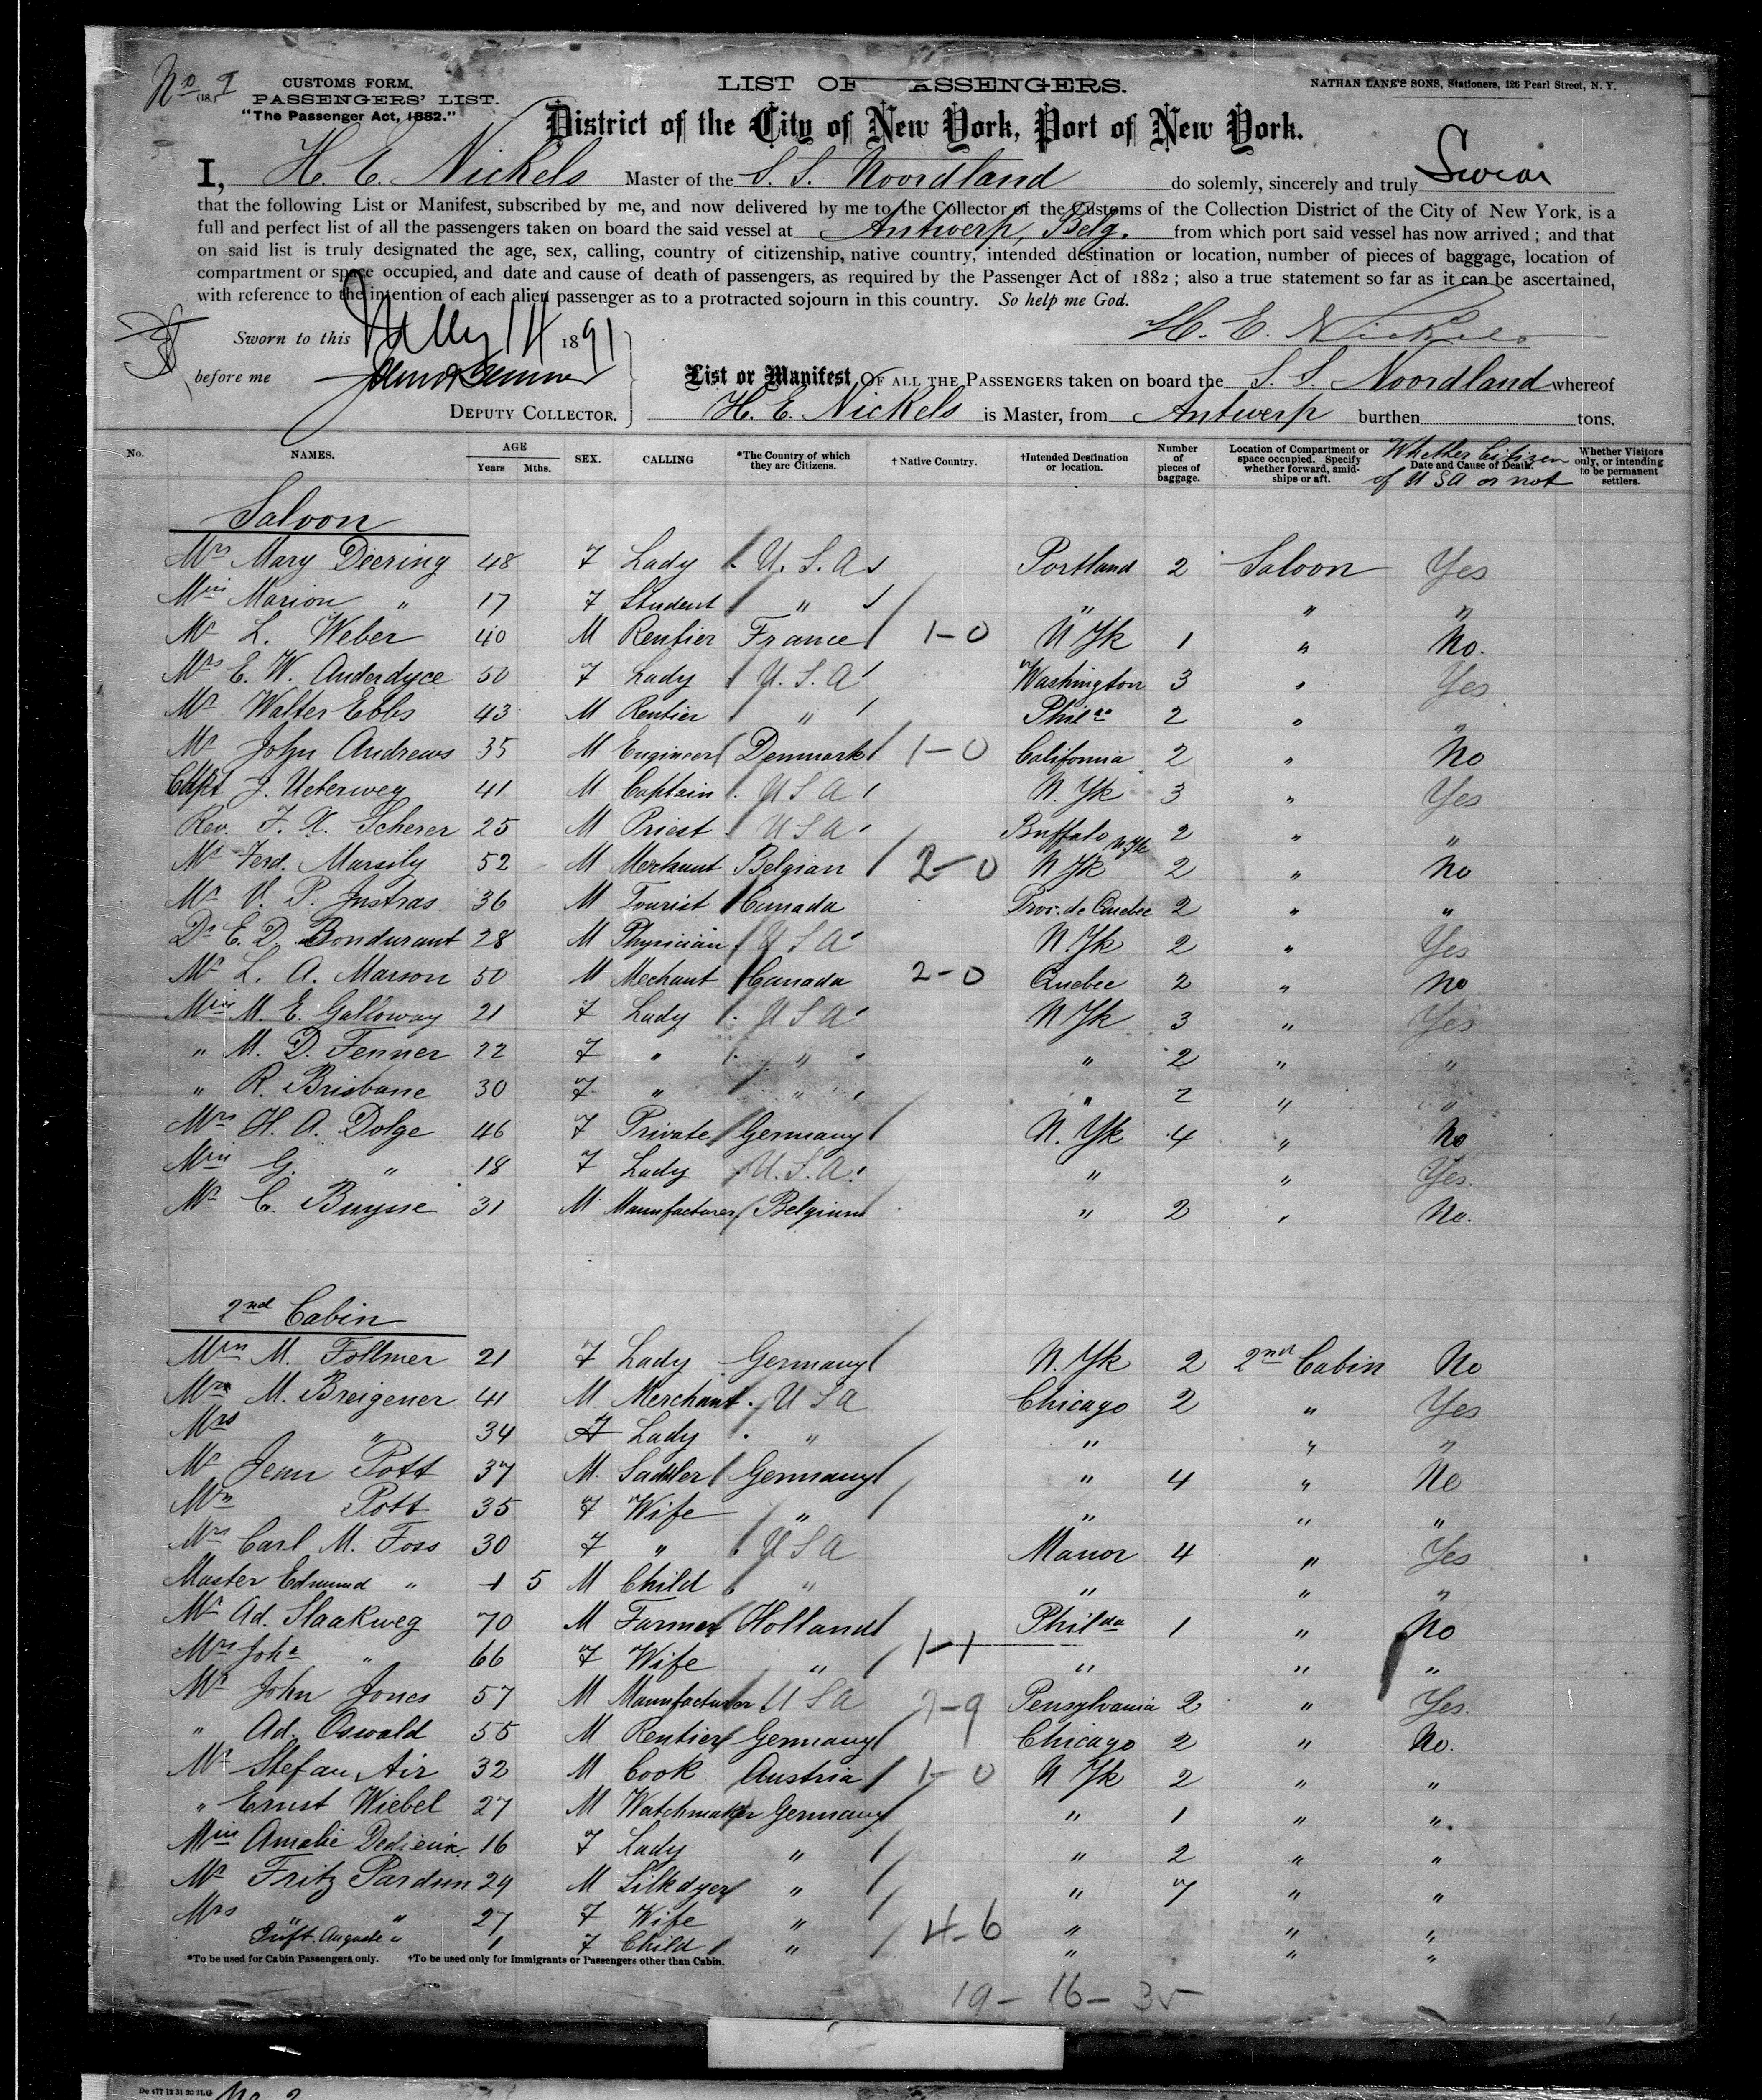 No. 9
(18.)
CUSTOMS FORM,
PASSENGERS' LIST.
"The Passenger Act, 1882."
LIST OF PASSENGERS.
NATHAN LANE'S SONS, Stationers, 126 Pearl Street, N. Y.
District of the City of New York, Port of New York.
I, H. E. Nickels Master of the S. S. Noordland do solemnly, sincerely and truly Swear
that the following List or Manifest, subscribed by me, and now delivered by me to the Collector of the Customs of the Collection District of the City of New York, is a
full and perfect list of all the passengers taken on board the said vessel at Antwerp, Belg. from which port said vessel has now arrived; and that
on said list is truly designated the age, sex, calling, country of citizenship, native country, intended destination or location, number of pieces of baggage, location of
compartment or space occupied, and date and cause of death of passengers, as required by the Passenger Act of 1882; also a true statement so far as it can be ascertained,
with reference to the intention of each alien passenger as to a protracted sojourn in this country. So help me God.
H. E. Nickels
Sworn to this 14 1891
before me
DEPUTY COLLECTOR.
List or Manifest OF ALL THE PASSENGERS taken on board the S. S. Noordland whereof
H. E. Nickels is Master, from Antwerp burthen tons.
No. NAMES. AGE Years Mths. SEX. CALLING *The Country of which they are Citizens. †Native Country. †Intended Destination or location. Number of pieces of baggage. Location of Compartment or space occupied. Specify whether forward, amidships or aft. Date and Cause of Death. Whether Citizen of USA or not Whether Visitors only, or intending to be permanent settlers.
Saloon
Mrs Mary Deering 48 F Lady U. S. A Portland 2 Saloon Yes
Miss Marion " 17 F Student " " " "
Mr L. Weber 40 M Rentier France 1-0 N Yk 1 " No.
Mrs E. W. Anderdyce 50 F Lady U. S. A Washington 3 " Yes
Mr Walter Ebbs 43 M Rentier " Phila 2 " "
Mr John Andrews 35 M Engineer Denmark 1-0 California 2 " No
Capt J. Ueberweg 41 M Captain U S A N. Yk 3 " Yes
Rev. F. X. Scherer 25 M Priest U S A Buffalo N.Yk 2 " "
Mr Ferd. Marsily 52 M Merchant Belgian 2-0 N Yk 2 " No
Mr V. P. Justras 36 M Tourist Canada Prov. de Quebec 2 " "
Dr E. D. Bondurant 28 M Physician U S A N. Yk 2 " Yes
Mr L. A. Marson 50 M Mechant Canada 2-0 Quebec 2 " No
Miss M. E. Galloway 21 F Lady U S A N Yk 3 " Yes
" M. D. Fenner 22 F " " " 2 " "
" R. Brisbane 30 F " " " 2 " "
Mrs H. A. Dolge 46 F Private Germany N. Yk 4 " No
Miss G. " 18 F Lady U. S. A. " " Yes.
Mr C. Buysse 31 M Manufacturer Belgium " 2 " No.
2nd Cabin
M. Follmer 21 F Lady Germany N. Yk 2 2nd Cabin No
M. Breigener 41 M Merchant U S A Chicago 2 " Yes
Mrs " 34 F Lady " " " "
Mr Jean Pott 37 M. Saddler Germany " 4 " No
Mrs Pott 35 F Wife " " " "
Mrs Carl M. Foss 30 F " U S A Manor 4 " Yes
Master Edmund " 1 5 M Child " " " "
Mr Ad. Slaakweg 70 M Farmer Holland Philda 1 " No
Mrs Joha " 66 F Wife " 1-1 " " "
Mr John Jones 57 M Manufacturer U S A Pensylvania 2 " Yes.
" Ad. Oswald 55 M Rentier Germany Chicago 2 " No.
Mr Stefan Air 32 M Cook Austria 1-0 N Yk 2 " "
" Ernst Wiebel 27 M Watchmaker Germany " 1 " "
Miss Amalie 16 F Lady " " 2 " "
Mr Fritz Pardun 29 M Silkdyer " " 7 " "
Mrs " " 27 F Wife " 4-6 " " "
Auguste " 1 F Child " " " "
*To be used for Cabin Passengers only. †To be used only for Immigrants or Passengers other than Cabin.
19 - 16 - 35
No 2